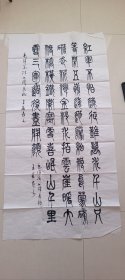 紅軍不怕遠征難萬水千山只
等閒五嶺逶迤騰細浪烏蒙磅
礴走泥丸金沙水拍雲崖暖大
渡橋橫鐵索寒更喜岷山千里
雪三軍過後盡開顏